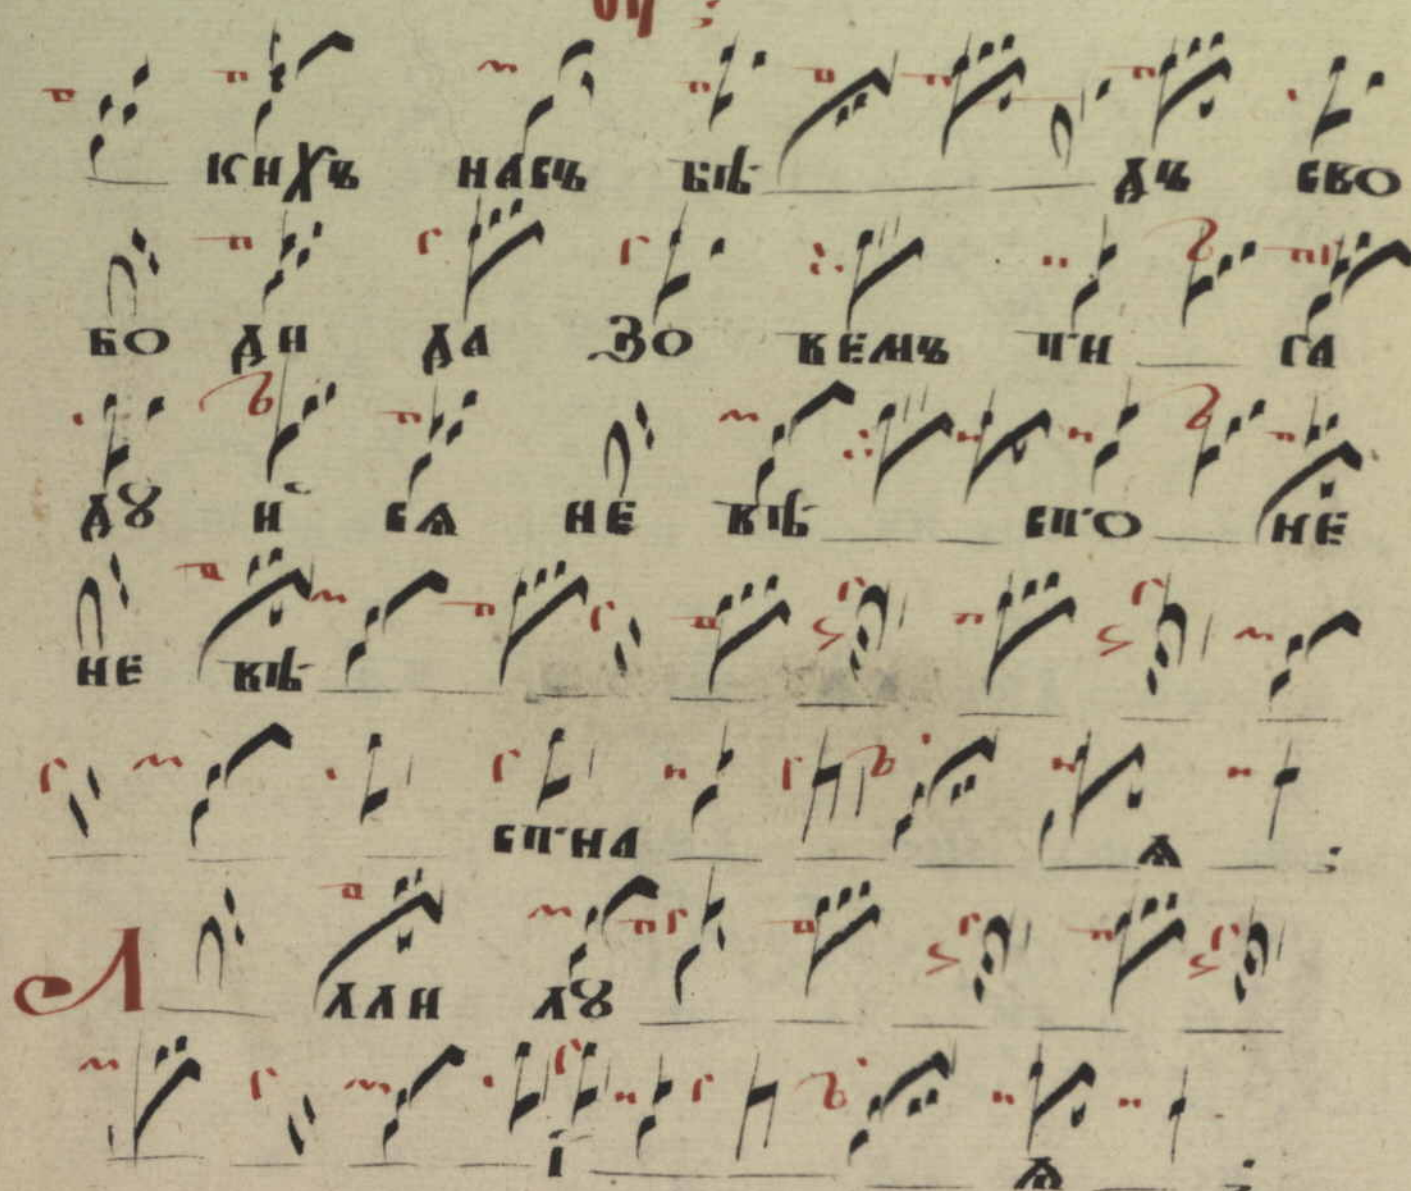 кихъ насъ бѣ дъ сво
бо ди да зо вемъ ти ра
дꙋ й сѧ не вѣ сто не
не вѣ
стна ѧ
А лли лꙋ
ї ѧ